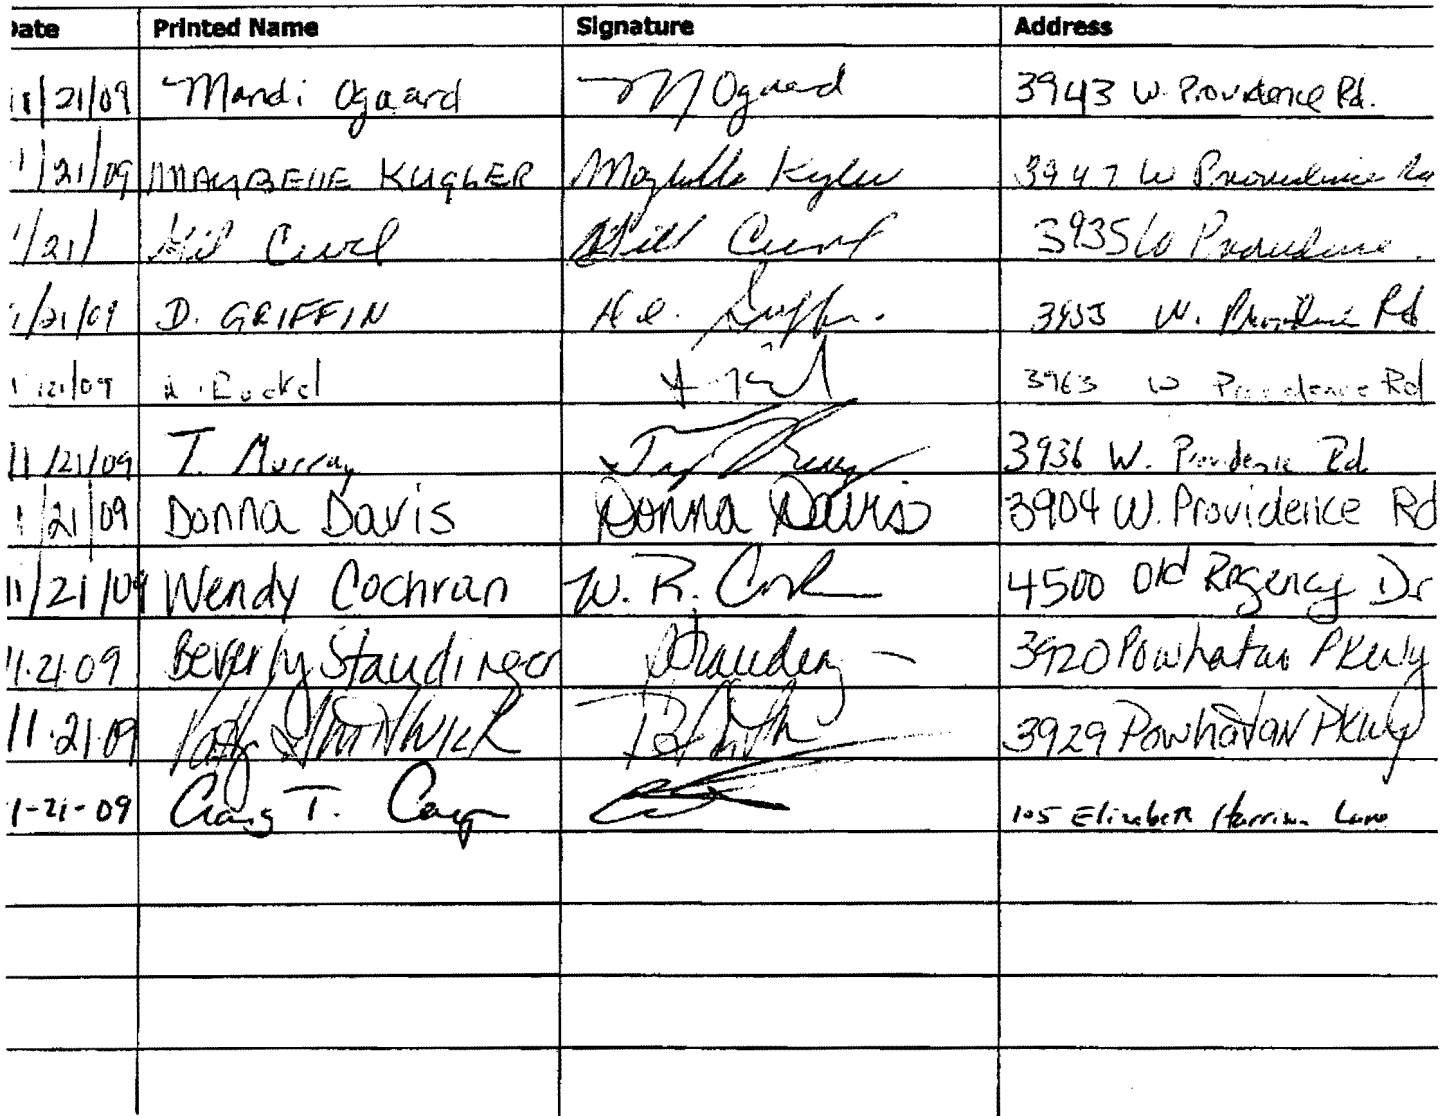 Date Printed Name Signature Address
11/21/09 Mandi Ogaard M Ogaard 3943 W. Providence Rd.
1/21/09 MAYBELLE KUGLER Maybelle Kugler 3947 W Providence Rd
1/21/ Gil Curl Gill Curl 3935 W Providence
1/21/09 D. GRIFFIN Griffin 3955 W. Providence Rd
1/21/09 3963 W Providence Rd
11/21/09 T. Murray 3936 W. Providence Rd
1/21/09 Donna Davis Donna Davis 3904 W. Providence Rd
11/21/09 Wendy Cochran W. R. 4500 Old Regency Dr
11.21.09 Beverly Staudinger 3920 Powhatan PKwy
11.21.09 3929 Powhatan PKwy
1-21-09 Craig T. 105 Elizabeth Harrison Lane